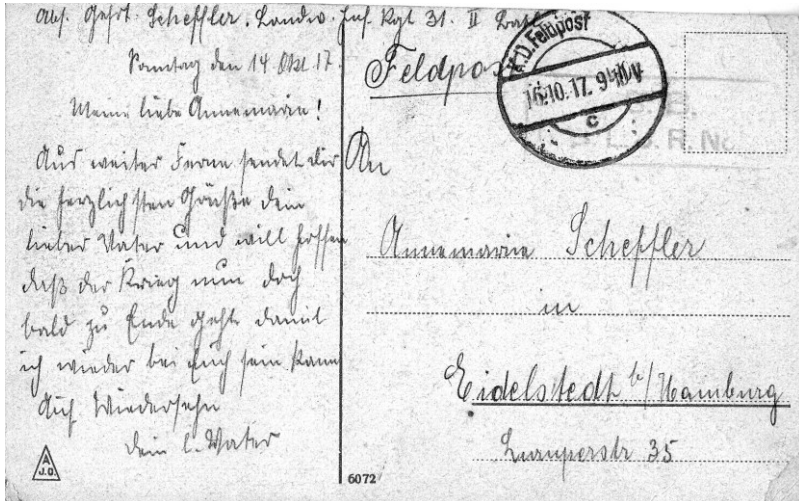 Abs. Gefrt. Scheffler. Landw. Inf. Rgt 31. II Batl
Sonntag den 14 Okt 17.
Meine liebe Annemarie!
Aus weiter Ferne sendet dir
die herzlichsten Grüße dein
lieber Vater und will hoffen
daß der Krieg nun doch
bald zu Ende geht damit
ich wieder bei Euch sein kann
Auf Wiedersehn
dein l. Vater
A
J.O.
6072
Feldpost
K.D.Feldpost
16.10.17. 9-10V
c
S.B.
L.J.R. No
An
Annemarie Scheffler
in
Eidelstedt b/Hamburg
Luruperstr 35